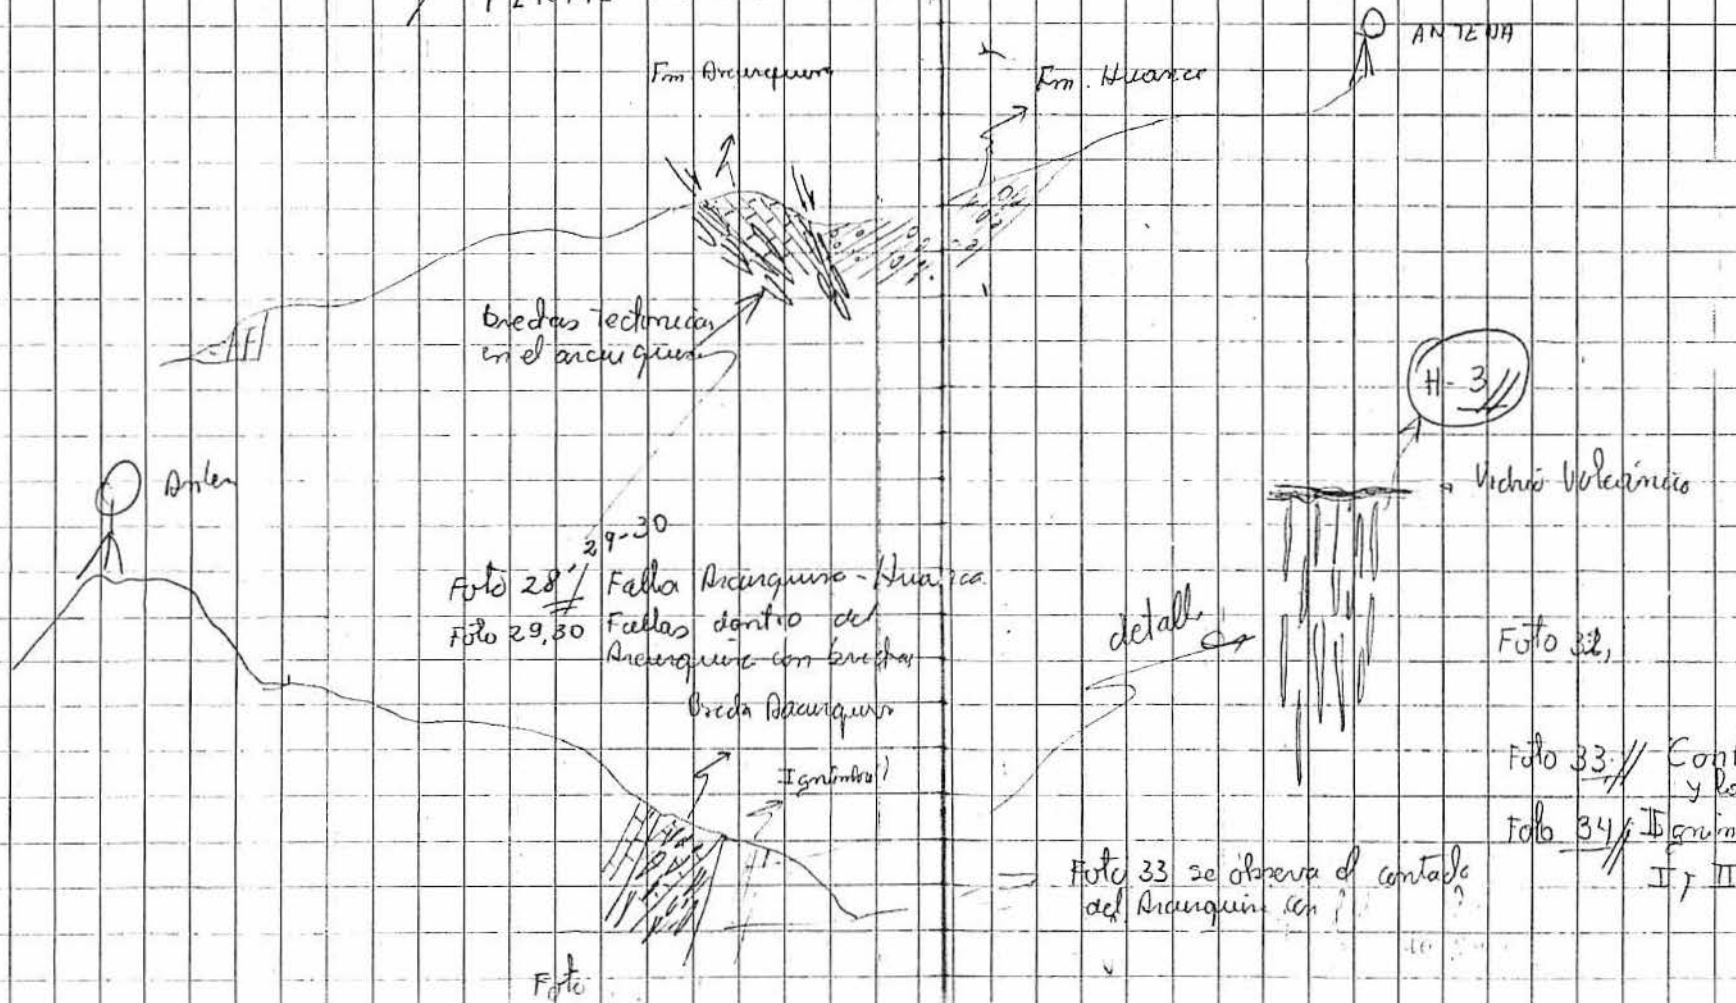 ANTENA
Fm Arcurquina
Fm. Huanca
brechas Tectonicas
en el arcurquina
H-3
Vidrio Volcánico
29-30
Foto 28 Falla Arcurquina - Huanca
Foto 29,30 Fallas dentro del
Arcurquina con brechas
Brecha Arcurquina
detalle
Foto 32,
Ignimbri
Foto 33 Con
y lo
Foto 34 Ignim
I y II
Foto 33 se observa el contacto
del Arcurquina con ?
Foto